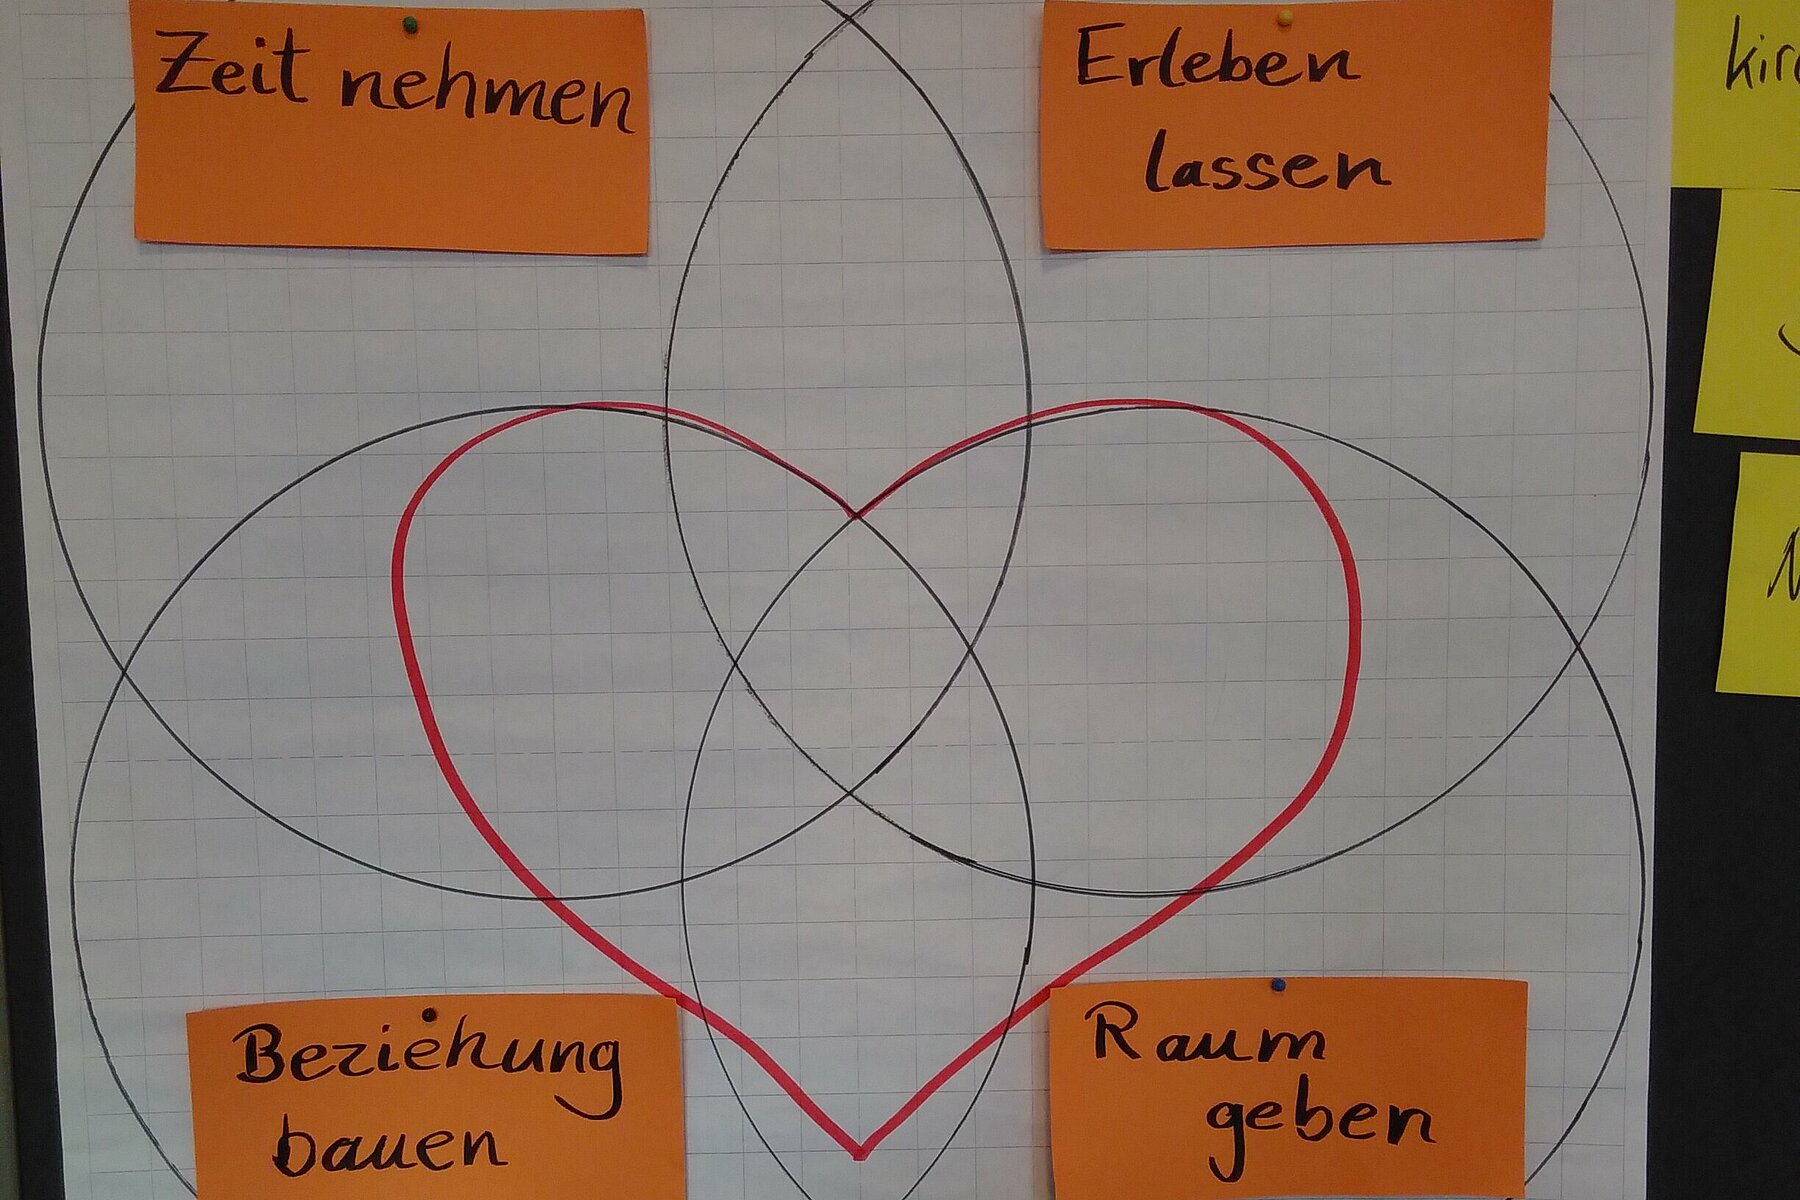 Zeit nehmen
Erleben
lassen
Beziehung
bauen
Raum
geben